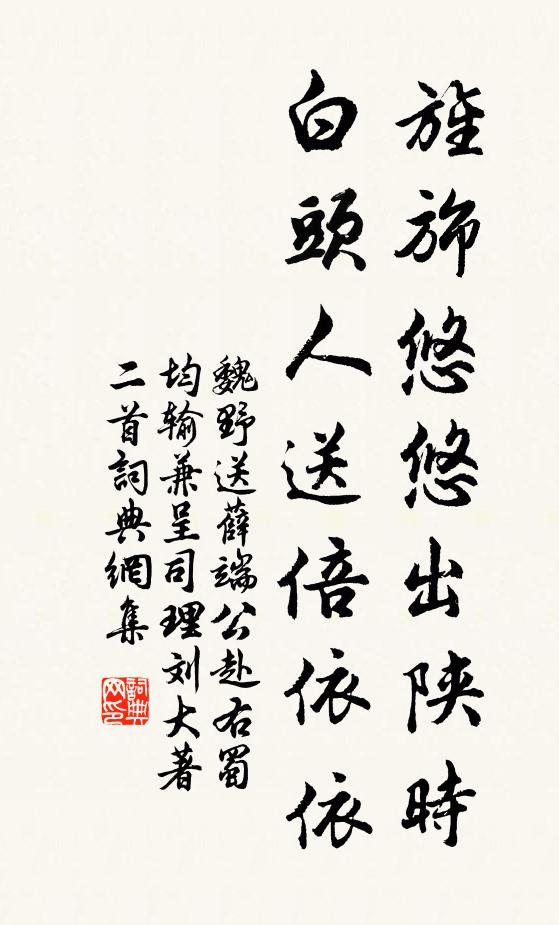 旌旆悠悠出陝時
白頭人送倍依依
魏野送薛端公赴右蜀
均輸兼呈司理刘大著
二首詞典網集
詞典
网印